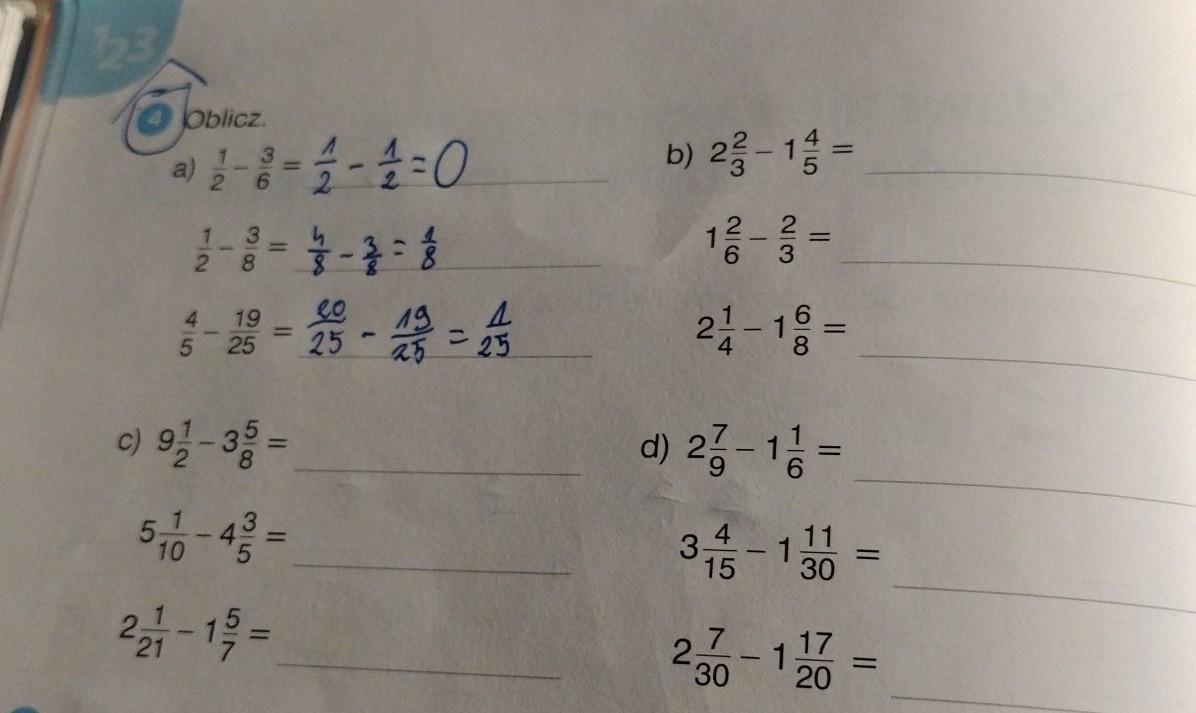 123
4 Oblicz.
a) 1/2 - 3/6 = 1/2 - 1/2 = 0
1/2 - 3/8 = 4/8 - 3/8 = 1/8
4/5 - 19/25 = 20/25 - 19/25 = 1/25
b) 2 2/3 - 1 4/5 =
1 2/6 - 2/3 =
2 1/4 - 1 6/8 =
c) 9 1/2 - 3 5/8 =
5 1/10 - 4 3/5 =
2 1/21 - 1 5/7 =
d) 2 7/9 - 1 1/6 =
3 4/15 - 1 11/30 =
2 7/30 - 1 17/20 =